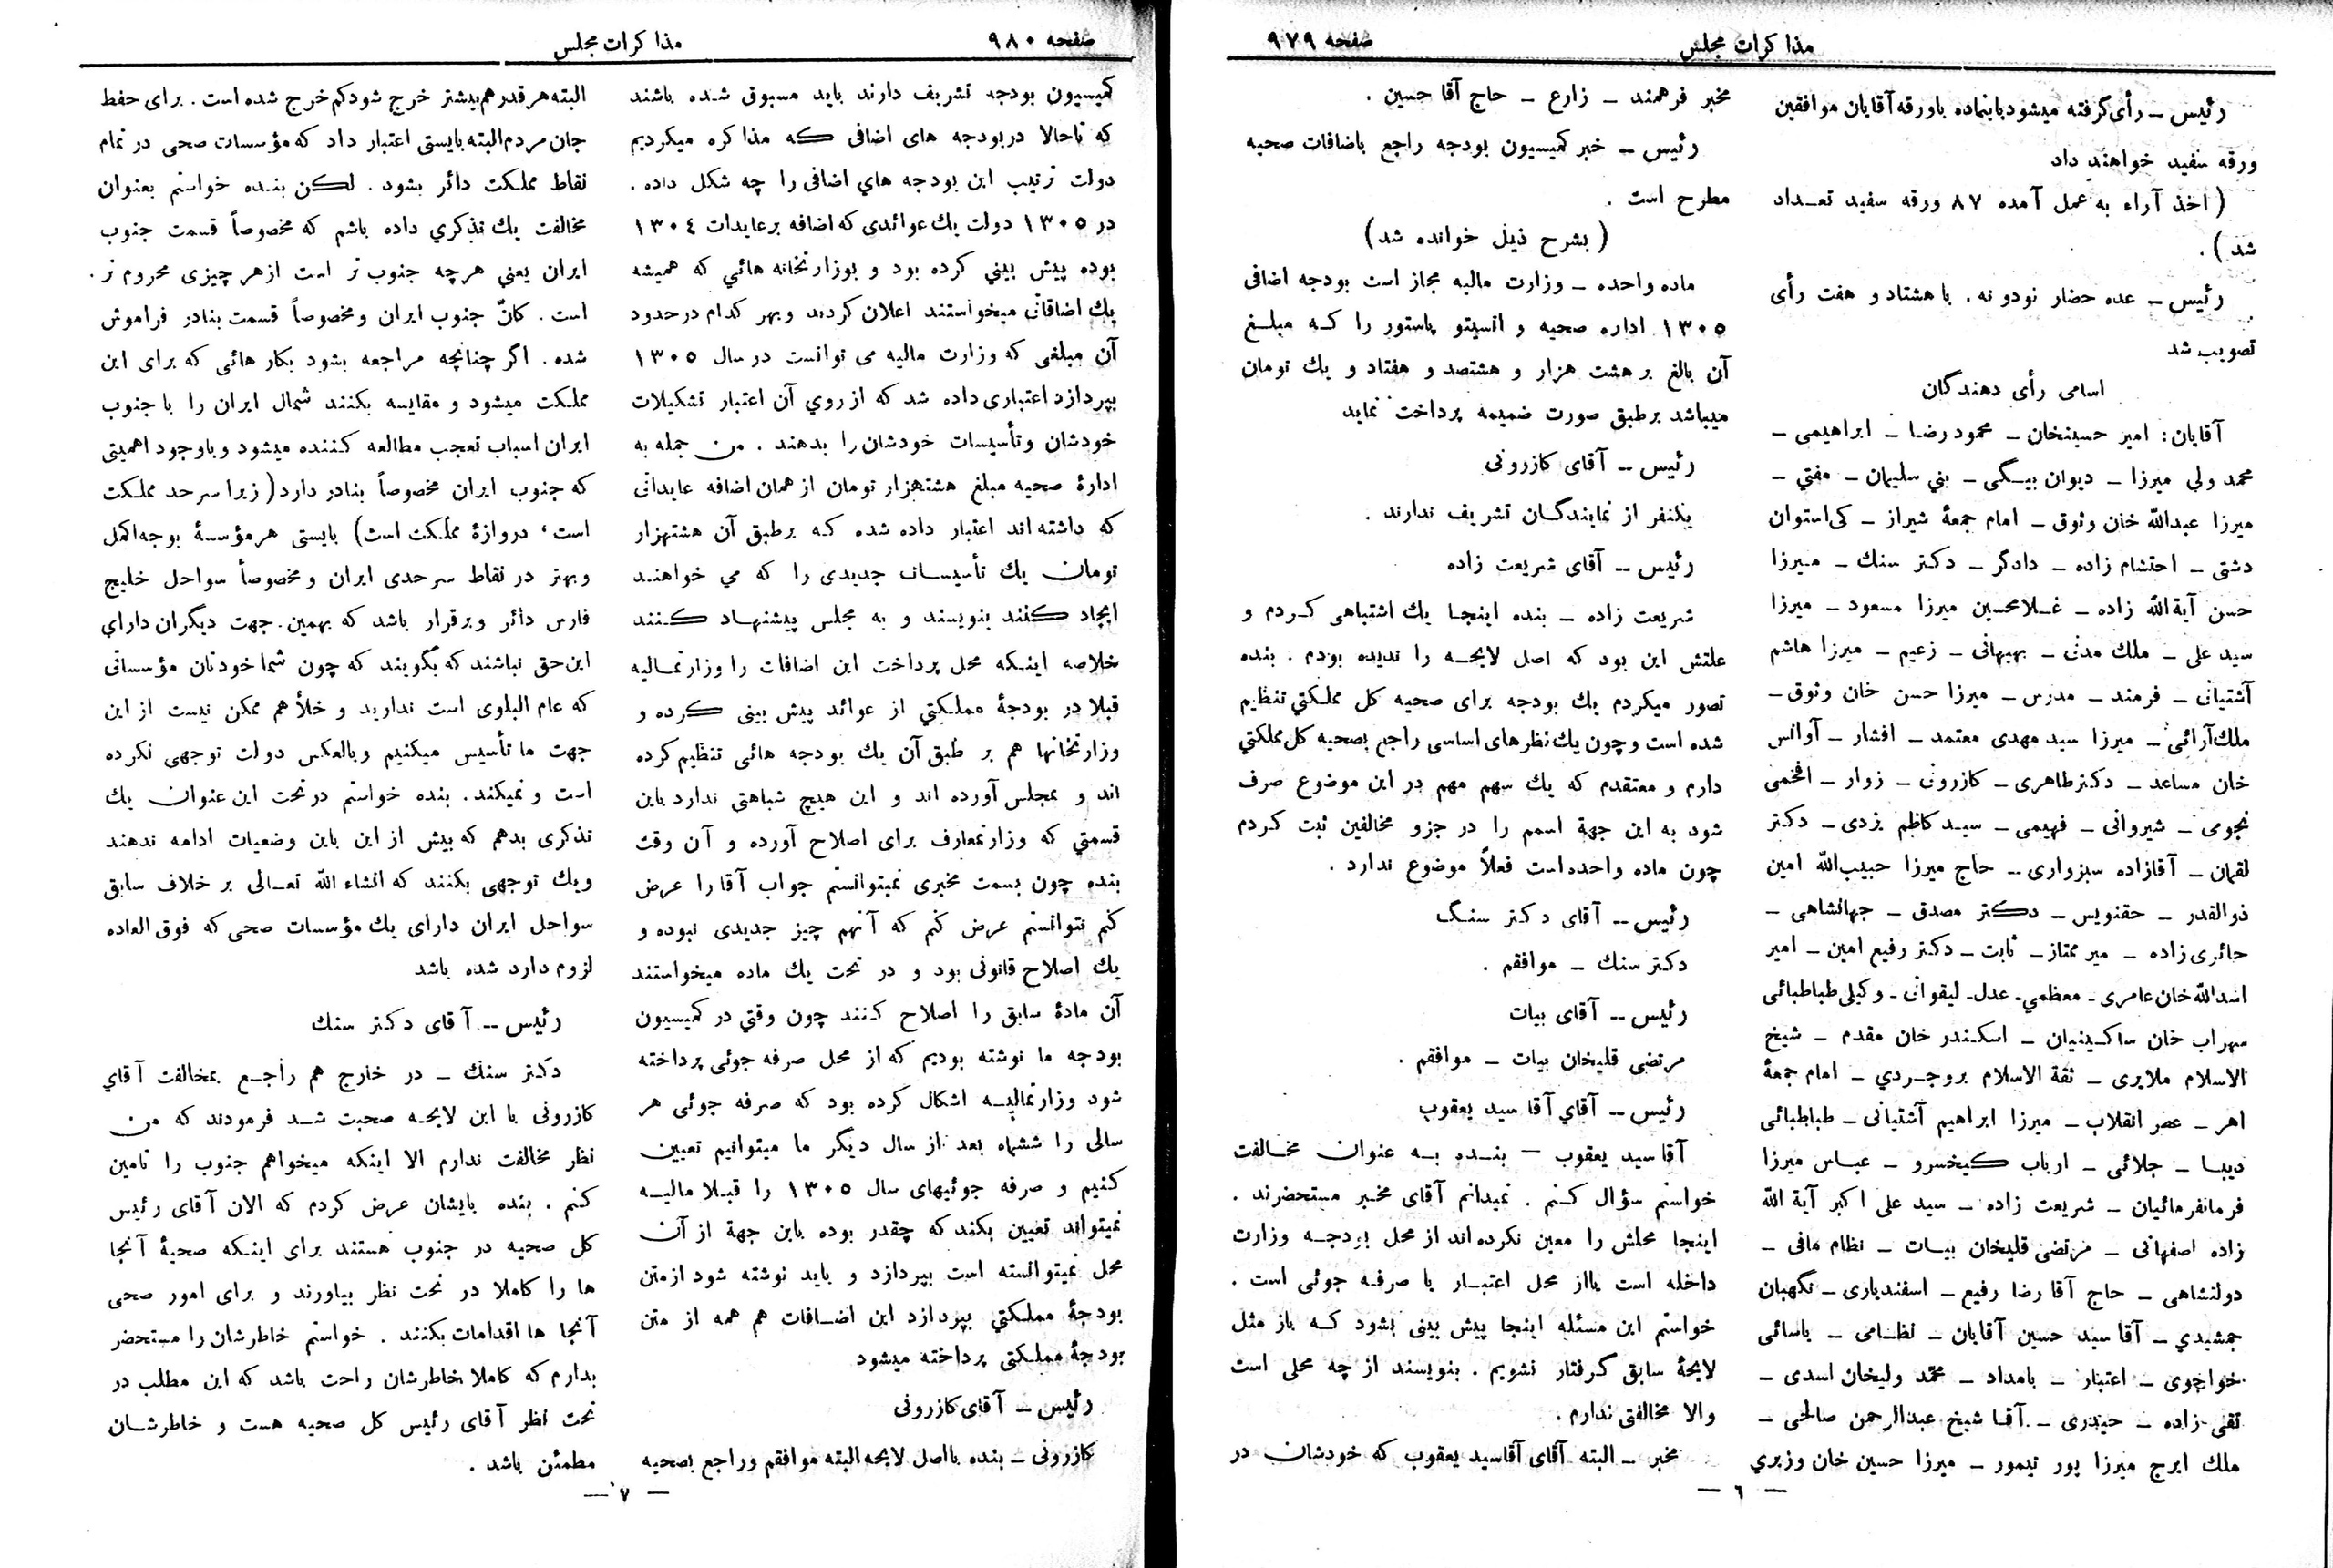 مذاکرات مجلس
صفحه ۹۷۹
رئیس – رأی گرفته میشود باین ماده با ورقه آقایان موافقین
ورقه سفید خواهند داد
(اخذ آراء به عمل آمده ۸۷ ورقه سفید تعداد
شد) .
رئیس – عده حضار نود و نه . با هشتاد و هفت رأی
تصویب شد
اسامی رأی دهندگان
آقایان : امیر حسینخان – محمود رضا – ابراهیمی –
محمد ولی میرزا – دیوان بیگی – بنی سلیمان – مفتی –
میرزا عبدالله خان وثوق – امام جمعهٔ شیراز – کی استوان
دشتی – احتشام زاده – دادگر – دکتر سنك – میرزا
حسن آیة الله زاده – غلامحسین میرزا مسعود – میرزا
سید علی – ملك مدنی – بهبهانی – زعیم – میرزا هاشم
آشتیانی – فرمند – مدرس – میرزا حسن خان وثوق –
ملك آرائی – میرزا سید مهدی معتمد – افشار – آوانس
خان مساعد – دکتر طاهری – کازرونی – زوار – افخمی
نجومی – شیروانی – فهیمی – سید کاظم یزدی – دکتر
لقمان – آقازاده سبزواری – حاج میرزا حبیب الله امین
ذوالقدر – حقنویس – دکتر مصدق – جهانشاهی –
حائری زاده – میر ممتاز – ثابت – دکتر رفیع امین – امیر
اسدالله خان عامری – معظمی – عدل – لیقوانی – وکیلی طباطبائی
سهراب خان ساکینیان – اسکندر خان مقدم – شیخ
الاسلام ملایری – ثقة الاسلام بروجردی – امام جمعهٔ
اهر – عصر انقلاب – میرزا ابراهیم آشتیانی – طباطبائی
دیبا – جلائی – ارباب کیخسرو – عباس میرزا
فرمانفرمائیان – شریعت زاده – سید علی اکبر آیة الله
زاده اصفهانی – مرتضی قلیخان بیات – نظام مافی –
دولتشاهی – حاج آقا رضا رفیع – اسفندیاری – نگهبان
جمشیدی – آقا سید حسین آقایان – نظامی – یاسائی
خواجوی – اعتبار – بامداد – محمد ولیخان اسدی –
تقی زاده – حیدری – آقا شیخ عبدالرحمن صالحی –
ملك ایرج میرزا پور تیمور – میرزا حسین خان وزیری
مخبر فرهمند – زارع – حاج آقا حسین .
رئیس – خبر کمیسیون بودجه راجع باضافات صحیه
مطرح است .
(بشرح ذیل خوانده شد)
ماده واحده – وزارت مالیه مجاز است بودجه اضافی
۱۳۰۵ اداره صحیه و انستیتو پاستور را که مبلغ
آن بالغ بر هشت هزار و هشتصد و هفتاد و یك تومان
میباشد برطبق صورت ضمیمه پرداخت نماید
رئیس – آقای کازرونی
یکنفر از نمایندگان تشریف ندارند .
رئیس – آقای شریعت زاده
شریعت زاده – بنده اینجا یك اشتباهی کردم و
علتش این بود که اصل لایحه را ندیده بودم . بنده
تصور میکردم یك بودجه برای صحیه کل مملکتی تنظیم
شده است و چون یك نظرهای اساسی راجع بصحیه کل مملکتی
دارم و معتقدم که یك سهم مهم در این موضوع صرف
شود به این جهة اسمم را در جزو مخالفین ثبت کردم
چون ماده واحده است فعلاً موضوع ندارد .
رئیس – آقای دکتر سنگ
دکتر سنك – موافقم .
رئیس – آقای بیات
مرتضی قلیخان بیات – موافقم .
رئیس – آقای آقا سید یعقوب
آقا سید یعقوب – بنده به عنوان مخالفت
خواستم سؤال کنم . نمیدانم آقای مخبر مستحضرند .
اینجا محلش را معین نکرده اند از محل بودجه وزارت
داخله است یا از محل اعتبار یا صرفه جوئی است .
خواستم این مسئله اینجا پیش بینی بشود که باز مثل
لایحهٔ سابق گرفتار نشویم . بنویسند از چه محلی است
والا مخالفتی ندارم .
مخبر – البته آقای آقاسید یعقوب که خودشان در
— ٦ —
صفحه ۹۸۰
مذاکرات مجلس
کمیسیون بودجه تشریف دارند باید مسبوق شده باشند
که تا حالا در بودجه های اضافی که مذاکره میکردیم
دولت ترتیب این بودجه های اضافی را چه شکل داده .
در ۱۳۰۵ دولت یك عوائدی که اضافه بر عایدات ۱۳۰٤
بوده پیش بینی کرده بود و بوزارتخانه هائی که همیشه
یك اضافاتی میخواستند اعلان کردند و بهر کدام در حدود
آن مبلغی که وزارت مالیه می توانست در سال ۱۳۰۵
بپردازد اعتباری داده شد که از روی آن اعتبار تشکیلات
خودشان و تأسیسات خودشان را بدهند . من جمله به
ادارهٔ صحیه مبلغ هشتهزار تومان از همان اضافه عایداتی
که داشته اند اعتبار داده شده که برطبق آن هشتهزار
تومان یك تأسیسات جدیدی را که می خواهند
ایجاد کنند بنویسند و به مجلس پیشنهاد کنند
خلاصه اینکه محل پرداخت این اضافات را وزارتمالیه
قبلا در بودجهٔ مملکتی از عوائد پیش بینی کرده و
وزارتخانها هم بر طبق آن یك بودجه هائی تنظیم کرده
اند و بمجلس آورده اند و این هیچ شباهتی ندارد باین
قسمتی که وزارتمعارف برای اصلاح آورده و آن وقت
بنده چون بسمت مخبری نمیتوانستم جواب آقا را عرض
کنم نتوانستم عرض کنم که آنهم چیز جدیدی نبوده و
یك اصلاح قانونی بود و در تحت یك ماده میخواستند
آن مادهٔ سابق را اصلاح کنند چون وقتی در کمیسیون
بودجه ما نوشته بودیم که از محل صرفه جوئی پرداخته
شود وزارتمالیه اشکال کرده بود که صرفه جوئی هر
سالی را ششماه بعد از سال دیگر ما میتوانیم تعیین
کنیم و صرفه جوئیهای سال ۱۳۰۵ را قبلا مالیه
نمیتواند تعیین بکند که چقدر بوده باین جهة از آن
محل نمیتوانسته است بپردازد و باید نوشته شود از متن
بودجهٔ مملکتی بپردازد این اضافات هم همه از متن
بودجهٔ مملکتی پرداخته میشود
رئیس – آقای کازرونی
کازرونی – بنده با اصل لایحه البته موافقم و راجع بصحیه
البته هر قدر هم بیشتر خرج شود کم خرج شده است . برای حفظ
جان مردم البته بایستی اعتبار داد که مؤسسات صحی در تمام
نقاط مملکت دائر بشود . لکن بنده خواستم بعنوان
مخالفت یك تذکری داده باشم که مخصوصاً قسمت جنوب
ایران یعنی هرچه جنوب تر است از هر چیزی محروم تر .
است . کانّ جنوب ایران و مخصوصاً قسمت بنادر فراموش
شده . اگر چنانچه مراجعه بشود بکار هائی که برای این
مملکت میشود و مقایسه بکنند شمال ایران را با جنوب
ایران اسباب تعجب مطالعه کننده میشود و با وجود اهمیتی
که جنوب ایران مخصوصاً بنادر دارد (زیرا سرحد مملکت
است ، دروازهٔ مملکت است) بایستی هر مؤسسهٔ بوجه اکمل
و بهتر در نقاط سرحدی ایران و مخصوصاً سواحل خلیج
فارس دائر و برقرار باشد که بهمین جهت دیگران دارای
این حق نباشند که بگویند که چون شما خودتان مؤسساتی
که عام البلوی است ندارید و خلأ هم ممکن نیست از این
جهت ما تأسیس میکنیم و بالعکس دولت توجهی نکرده
است و نمیکند . بنده خواستم در تحت این عنوان یك
تذکری بدهم که بیش از این باین وضعیات ادامه ندهند
و یك توجهی بکنند که انشاء الله تعالی بر خلاف سابق
سواحل ایران دارای یك مؤسسات صحی که فوق العاده
لزوم دارد شده باشد
رئیس – آقای دکتر سنك
دکتر سنك – در خارج هم راجع بمخالفت آقای
کازرونی با این لایحه صحبت شد فرمودند که من
نظر مخالفت ندارم الا اینکه میخواهم جنوب را تامین
کنم . بنده بایشان عرض کردم که الان آقای رئیس
کل صحیه در جنوب هستند برای اینکه صحیهٔ آنجا
ها را کاملا در تحت نظر بیاورند و برای امور صحی
آنجا ها اقدامات بکنند . خواستم خاطرشان را مستحضر
بدارم که کاملا خاطرشان راحت باشد که این مطلب در
تحت نظر آقای رئیس کل صحیه هست و خاطرشان
مطمئن باشد .
— ۷ —